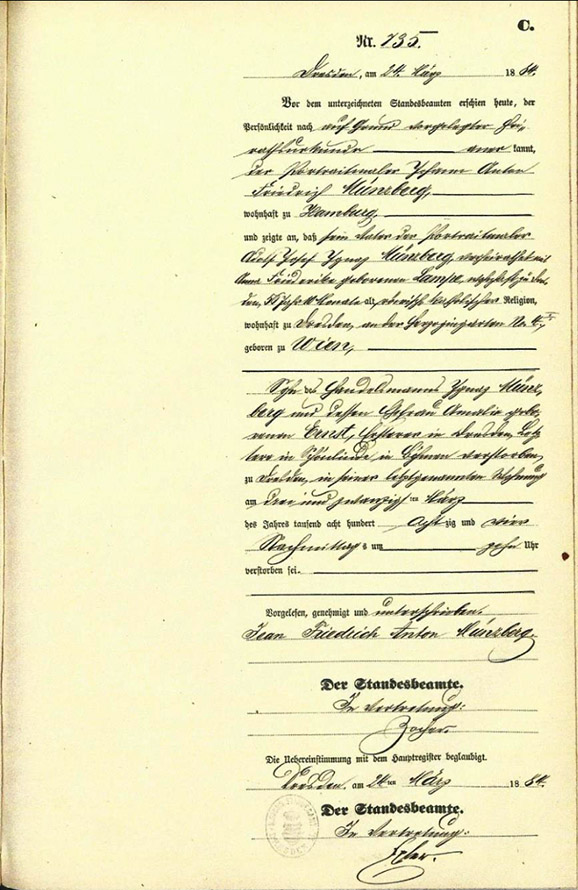 C.
Nr. 735.
Dresden, am 24. März 1884.
Vor dem unterzeichneten Standesbeamten erschien heute, der
Persönlichkeit nach auf Grund vorgelegter Hei-
rathsurkunde anerkannt,
der Portraitmaler Johann Anton
Friedrich Münzberg,
wohnhaft zu Hamburg,
und zeigte an, daß sein Vater der Portraitmaler
Adolf Josef Ignaz Münzberg, verheirathet mit
Anna Friederike geborenen Lampe, wohnhaft zu Dres-
den, 55 Jahr 10 Monate alt, römisch katholischer Religion,
wohnhaft zu Dresden, an der
geboren zu Wien,
Sohn des Handelsmanns Ignaz Münz-
berg und dessen Ehefrau Amalia gebo-
renen Ernst, Ersterer in Dresden, Letz-
tere in Schönlinde in Böhmen verstorben,
zu Dresden, in seiner letztgenannten Wohnung
am drei und zwanzigsten März
des Jahres tausend acht hundert achtzig und vier
Nachmittags um zehn Uhr
verstorben sei.
Vorgelesen, genehmigt und unterschrieben.
Jean Friedrich Anton Münzberg.
Der Standesbeamte.
In Vertretung:
Die Uebereinstimmung mit dem Hauptregister beglaubigt.
Dresden, am 24ten März 1884.
Der Standesbeamte.
In Vertretung: